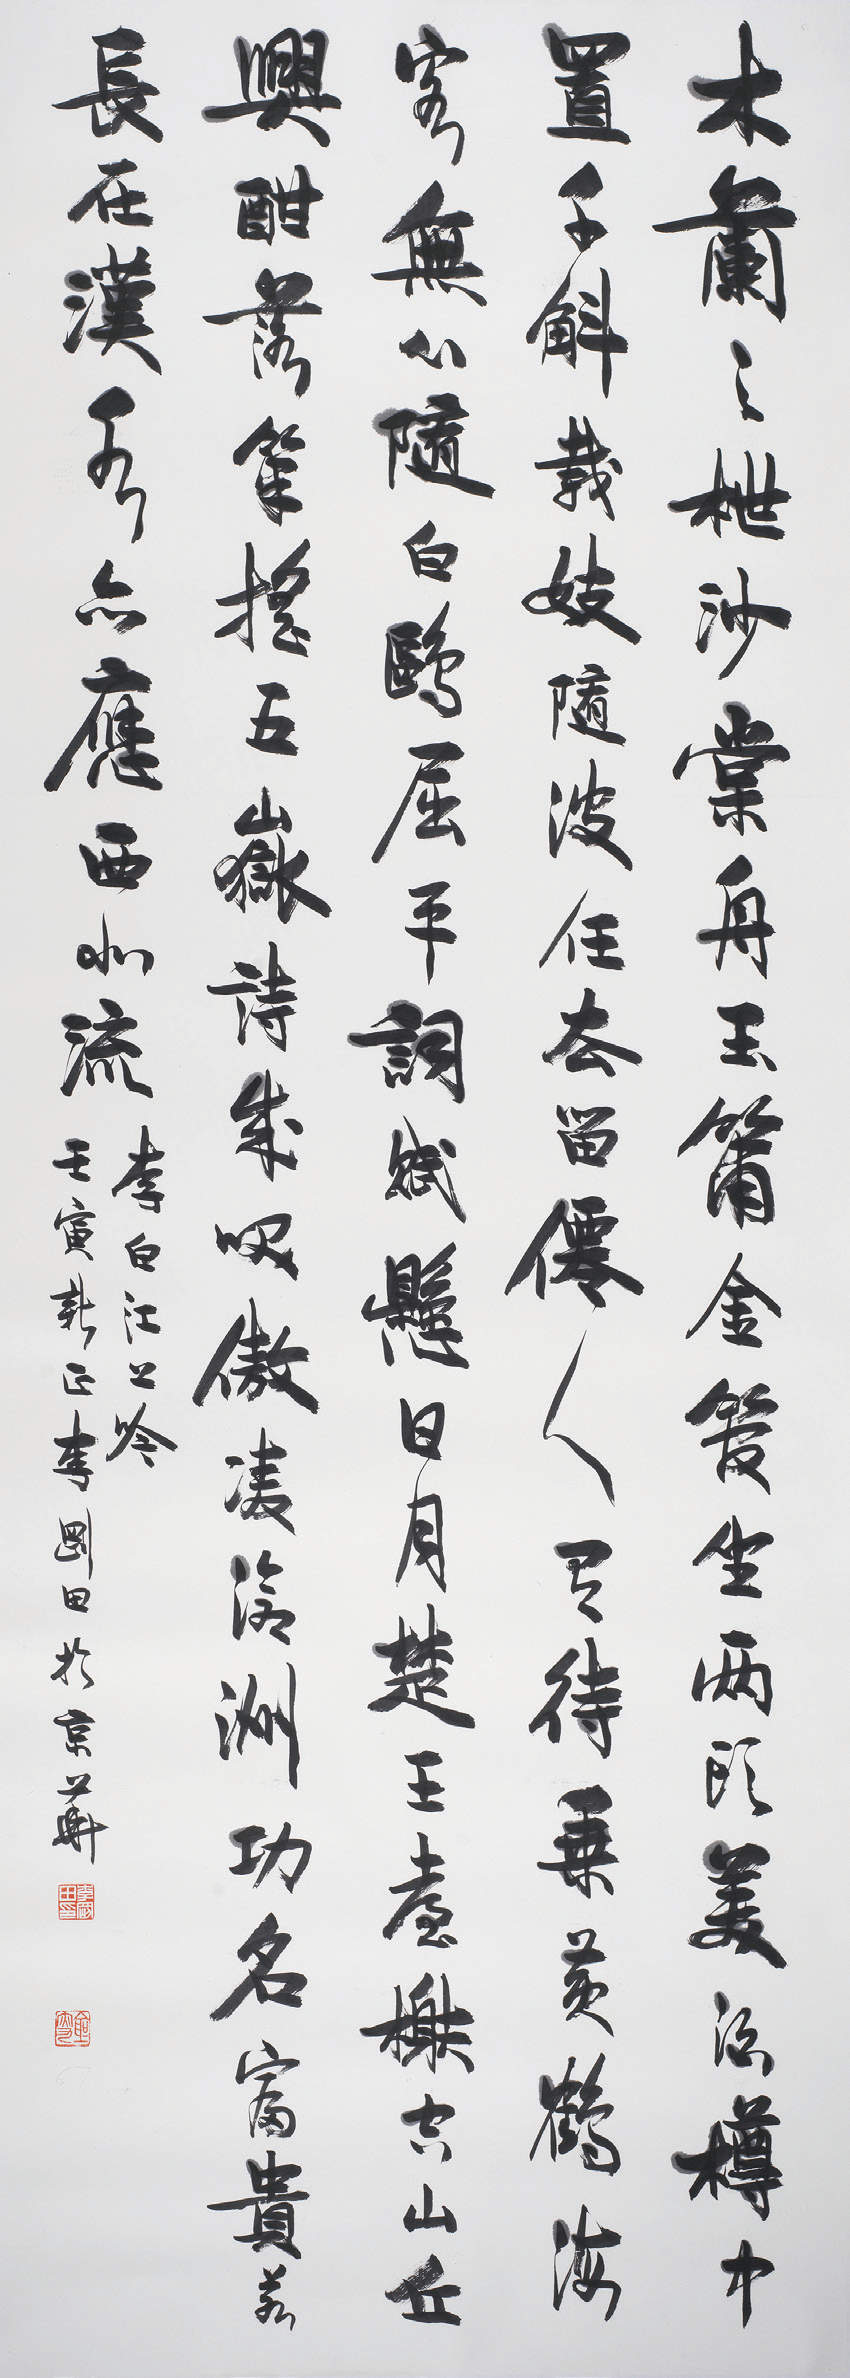 木蘭之枻沙棠舟玉簫金管坐两頭美酒樽中
置千斛載妓隨波任去留僊人有待乘黃鶴海
客無心隨白鷗屈平詞賦懸日月楚王臺榭空山丘
興酣落筆搖五嶽詩成咲傲凌滄洲功名富貴若
長在漢水亦應西北流
李白江上吟
壬寅新正李剛田於京華
李剛田印